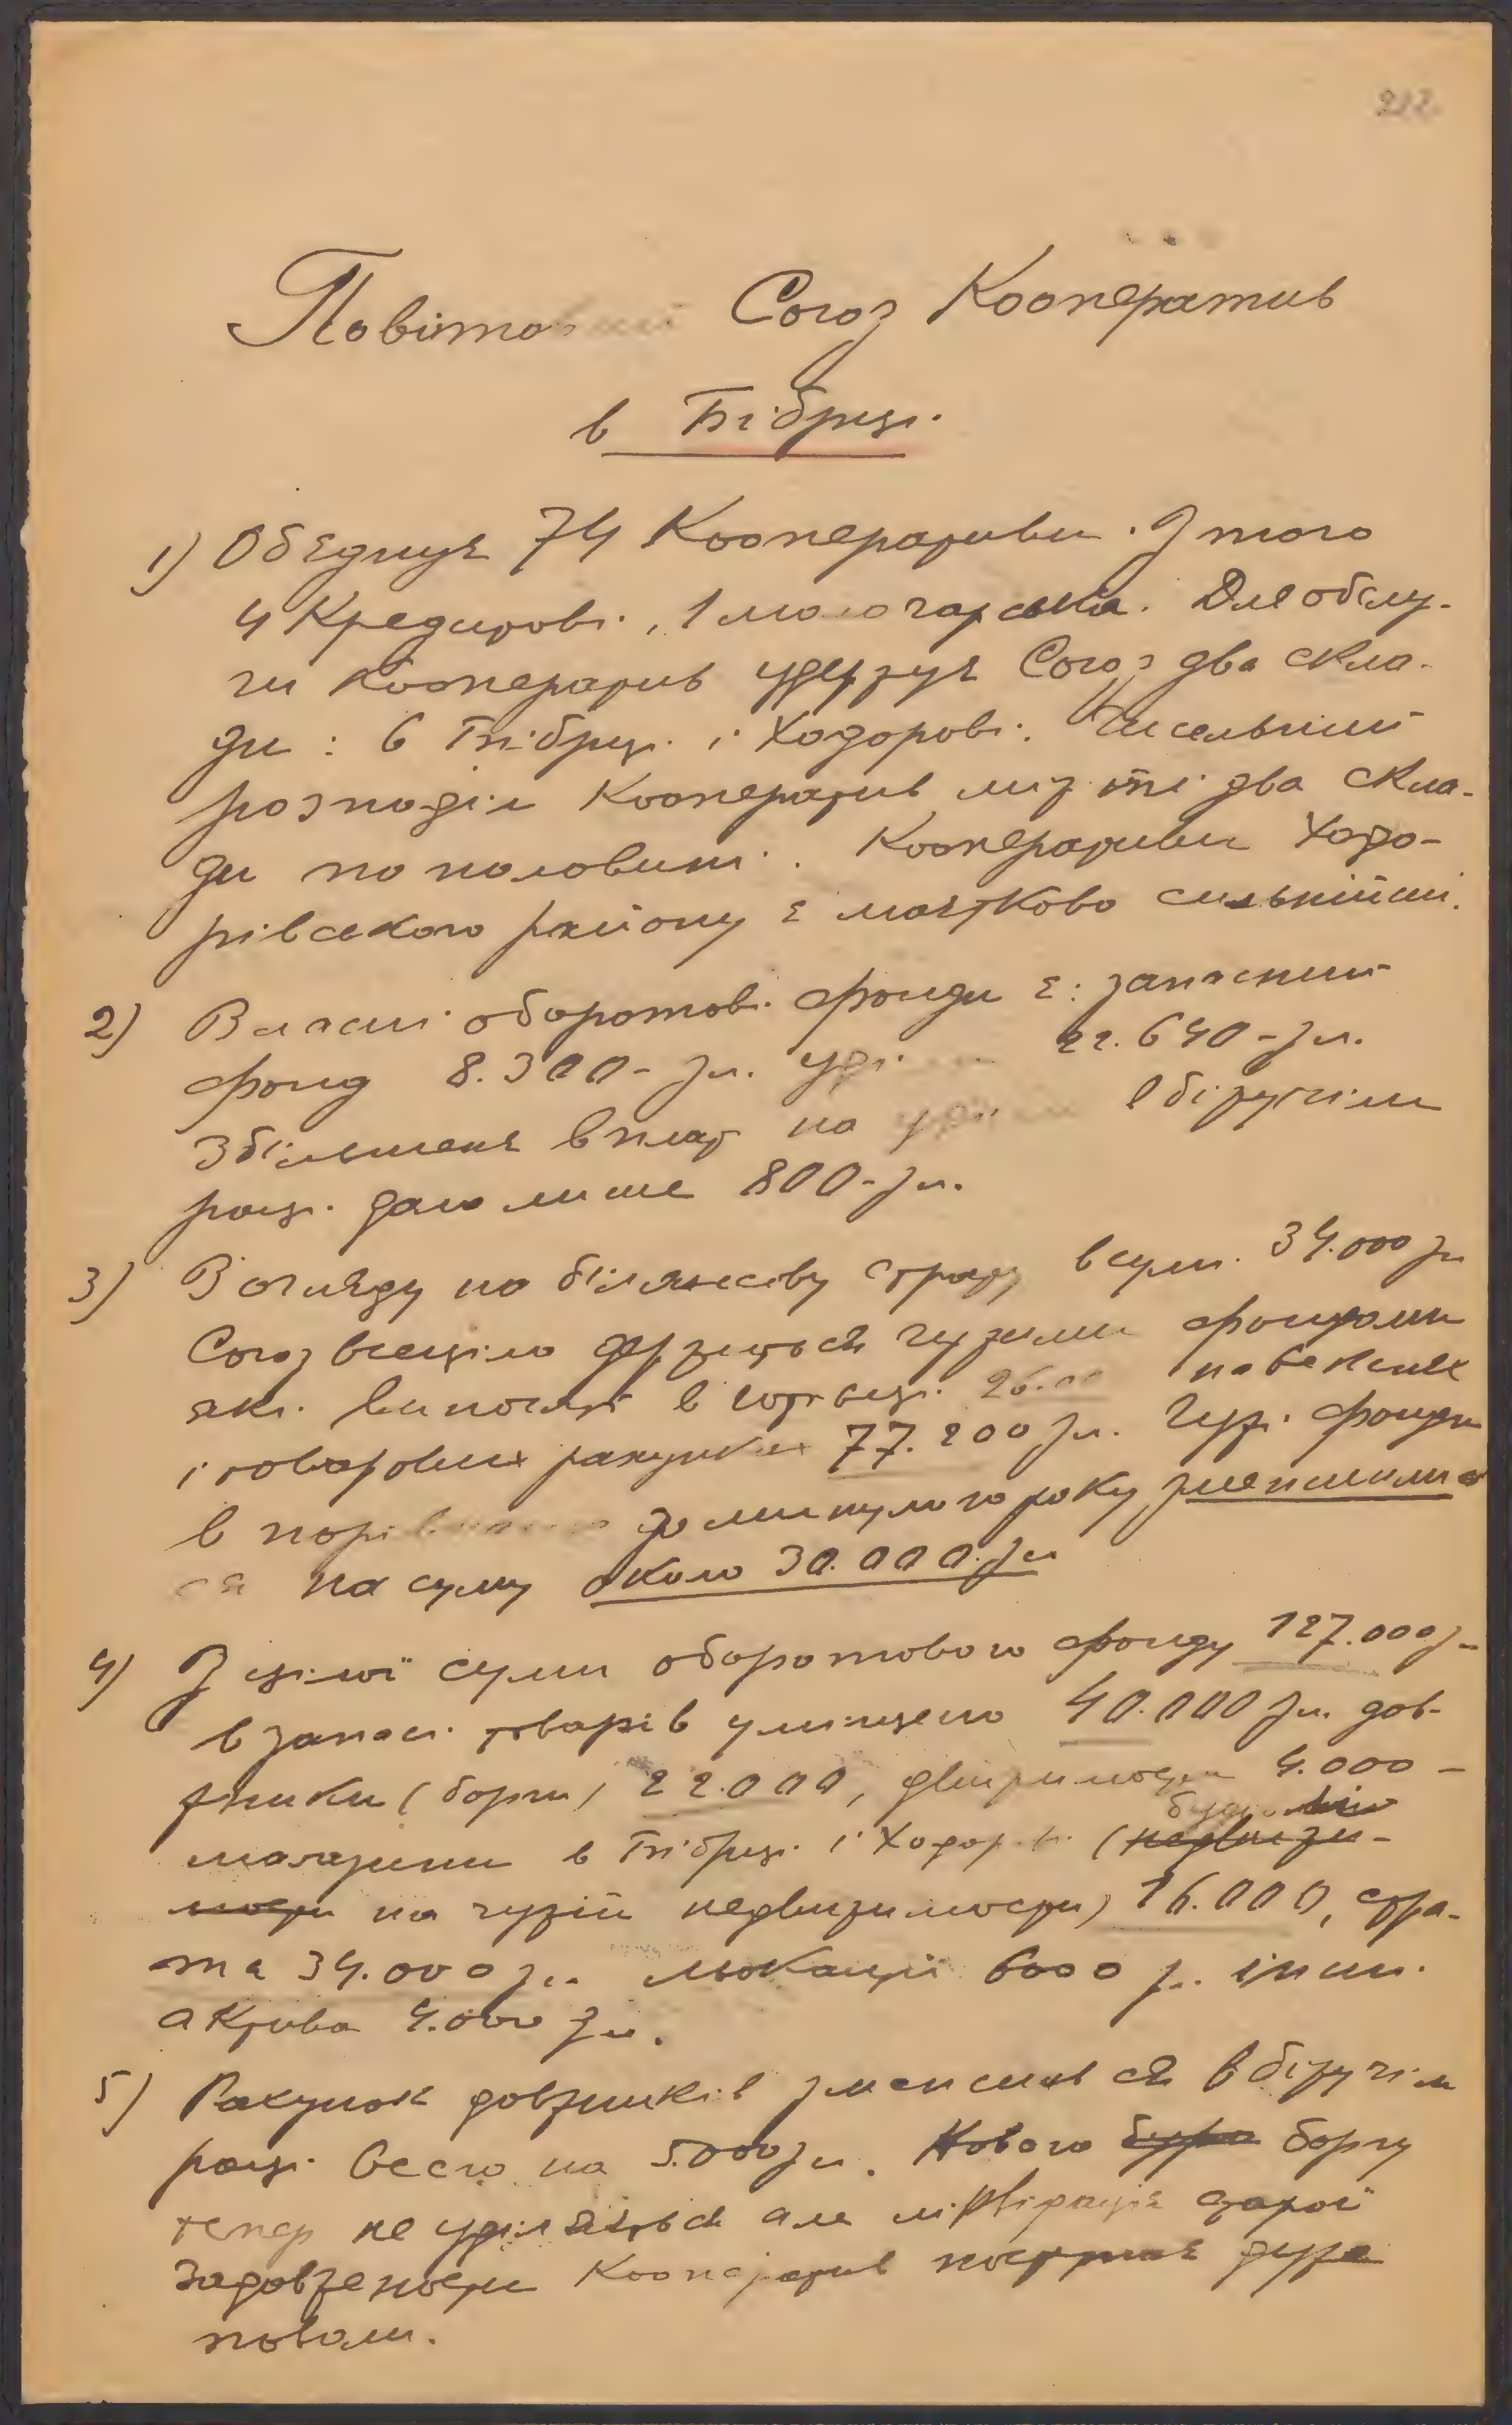 212
Повітовий Союз Кооператив
в Бібрці.
1) Обєднує 74 Кооперативи. З того
4 Кредитові, 1 молочарська. Для обслу-
ги Кооператив удержує Союз два скла-
ди: в Бібрці і Ходорові. Чисельний
розподіл Кооператив між ті два скла-
ди по половині. Кооперативи Ходо-
рівського району є маєтково сильнійші.
2) Власні оборотові фонди є: запасний
фонд 8.300- зл. уділ 22.640- зл.
Збільшенє вплат на уділи в біжучім
році дало лише 800- зл.
3) З огляду на білянсову страту в сумі 34.000 зл
Союз всеціло держиться чужими фондами
які виносять в готівці 26.00 на векслях
і товарових рахунках 77.200 зл. Чужі фонди
в порівнанню до минулого року зменшили
ся на суму около 30.000 зл
4) З цілої суми оборотового фонду 127.000 з-
в запасі товарів уміщено 40.000 зл. дов-
жники (борги) 22.000, движимости 4.000 -
будівлю
магазини в Бібрці і Ходорові (недвижи-
мости на чужій недвижимости) 16.000, стра-
та 34.000 зл. льокації 6000 з. інші
актива 4.000 зл.
5) Рахунок довжників зменшив ся в біжучім
році всего на 5.000 зл. Нового боргу
тепер не уділяється але ліквідація старої
задовжености Кооператив поступає дуже
поволи.